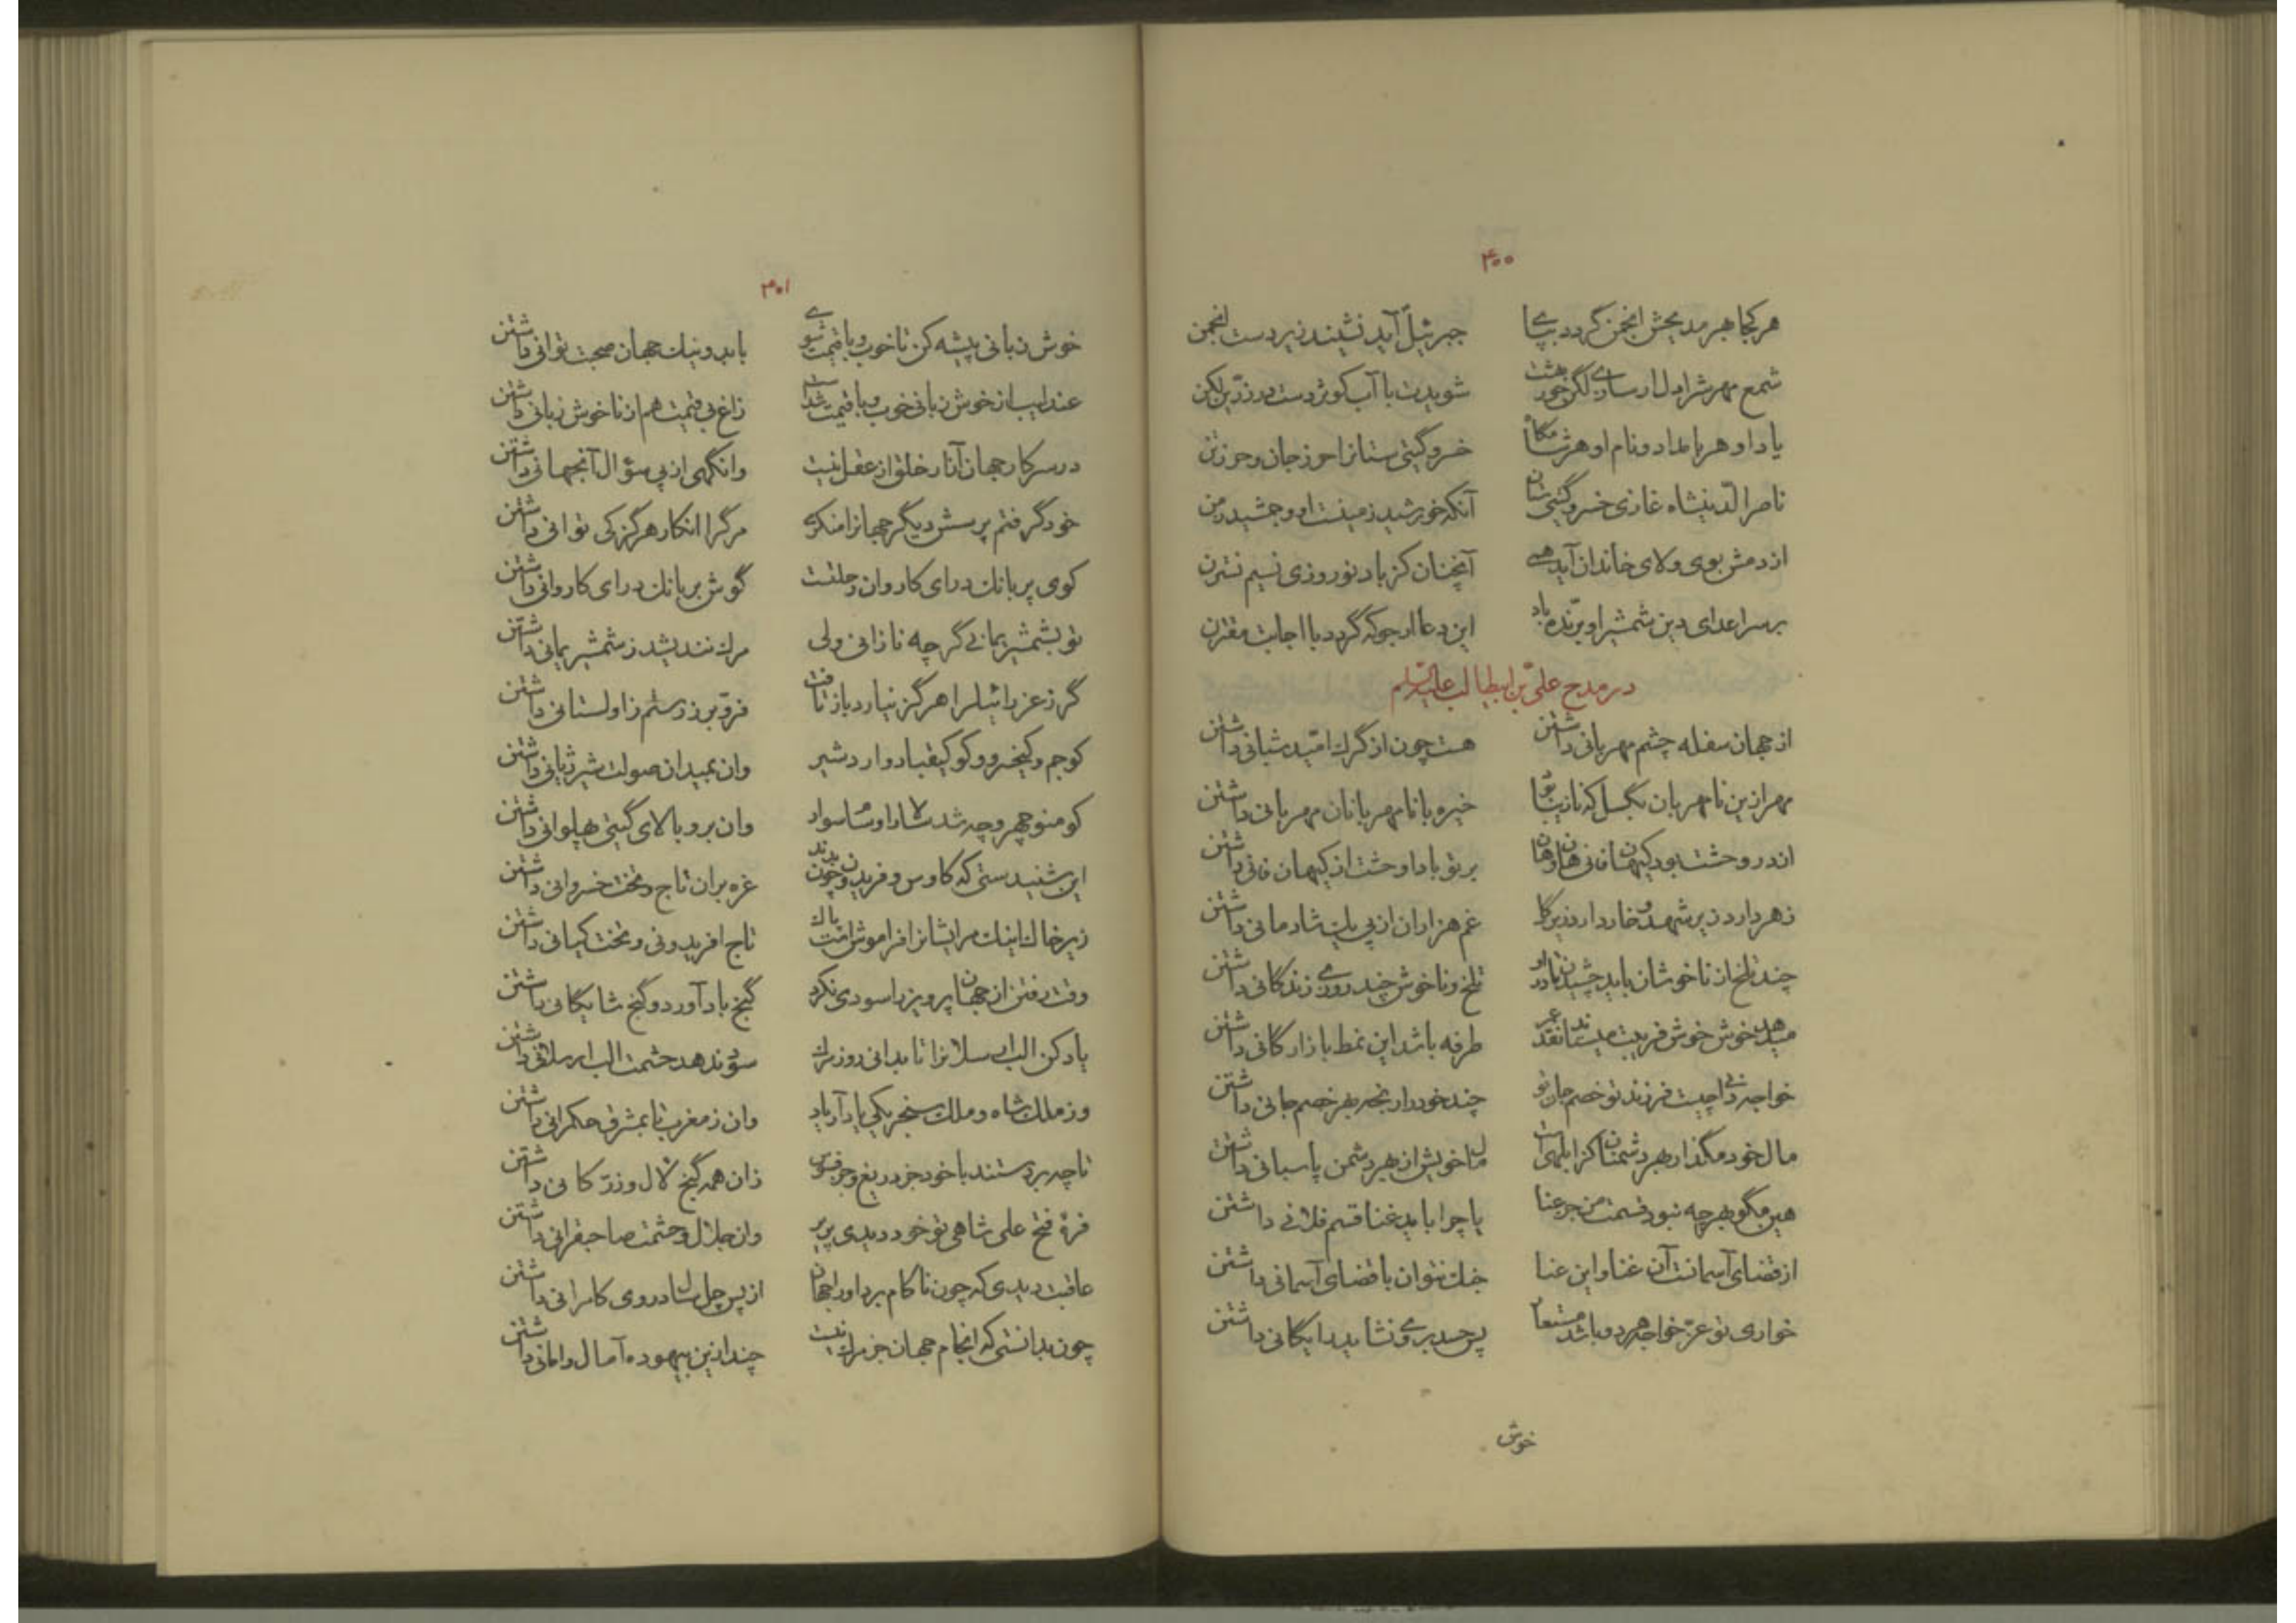 ۴۰۰
هر کجا بهر مدیحش انجمن گردد بپای جبرئیل آید نشیند زیردست انجمن
شمع مهرش را دل ار سازی لگن خور بهشت شویدت با آب کوثر دست در زرین لگن
یاد او هر بامداد و نام او هر شامگاه خسرو گیتی ستانرا حرز جان و حرز تن
ناصرالدینشاه غازی خسرو گیتی ستان آنکه خورشید زمینست او و جمشید زمن
از دمش بوی ولای خاندان آید همی آنچنان کز باد نوروزی نسیم نسترن
بر سر اعدای دین شمشیر او برّنده باد این دعا ارجو که گردد با اجابت مقترن
در مدح علی بن ابیطالب علیه السلام
از جهان سفله چشم مهربانی داشتن هست چون از گرک امید شبانی داشتن
مهر ازین نامهربان بگسل که نازیبا خیره با نامهربانان مهربانی داشتن
اندر وحشت بود کیهان فانی هان و هان بر تو بادا وحشت از کیهان فانی داشتن
زهر دارد زیر شهد و خار دارد زیر گل غم هزاران از پی یک شادمانی داشتن
چند تلخ از ناخوشان باید چشیدن تلخ و ناخوش چند روزی زندگانی داشتن
میدهد خوش خوش فریب میستاند نقد عمر طرفه باشد این نمط بازارگانی داشتن
خواجه دانی چیست فرزند تو خصم جان تو چند خود را رنجه بهر خصم جانی داشتن
مال خود مگذار بهر دشمنان کز ابلهی است مال خویش از بهر دشمن پاسبانی داشتن
هین مگو بهر چه نبود قسمت من جز عنا یا چرا باید غنا قسم فلانی داشتن
از قضای آسمانست آن غنا و این عنا جنک نتوان با قضای آسمانی داشتن
خواری تو عزّ خواجه هر دو باشد مستعار پس حسد بر وی نشاید رایگانی داشتن
خوش
۴۰۱
خوش زبانی پیشه کن تا خوب و با قیمت شوی با بد و نیک جهان صحبت توانی داشتن
عندلیب از خوش زبانی خوب و با قیمت شدست زاغ بی قیمت هم از ناخوش زبانی داشتن
در سر کار جهان آزار خلق از عقل نیست وانگهی از پی سؤال آنجهانی داشتن
خود گرفتم پرسش دیگر جهانرا منکری مرگ را انکار هرگز کی توانی داشتن
کوی پر بانک درای کاروان رحلتست گوش بر بانک درای کاروانی داشتن
تو بشمشیر یمانی گر چه نازانی ولی مرک نندیشد ز شمشیر یمانی داشتن
گرز عزرائیل را هرگز نیارد باز تافت فرّ و برز رستم زاولستانی داشتن
کو جم و کیخسرو و کو کیقباد و اردشیر وان بمیدان صولت شیر ژیانی داشتن
کو منوچهر و چه شد وان بر و بالای گیتی پهلوانی داشتن
این شنیدستی که کاوس و فریدون چون بدند غره بر ان تاج و تخت خسروانی داشتن
زیر خاک اینک مر ایشانرا فراموش است پاک تاج افریدونی و تخت کیانی داشتن
وقت رفتن از جهان پرویز را سودی نکرد گنج باد آورد و گنج شایگانی داشتن
یاد کن الب ارسلانرا تا بدانی روز مرک سود ندهد حشمت الب ارسلانی داشتن
وز ملک شاه و ملک سنجر یکی یاد آر یاد وان ز مغرب تا بمشرق حکمرانی داشتن
تا چه بردستند با خود جز دریغ و جز فسوس زان همه گنج لآل و زرّ کانی داشتن
فرهٔ فتح علی شاهی تو خود دیدی پریر وان جلال و حشمت صاحبقرانی داشتن
عاقبت دیدی که چون ناکام برد او را جهان از پس چل سال در وی کامرانی داشتن
چون بدانستی که انجام جهان جز مرک نیست چند ازین بیهوده آمال و امانی داشتن